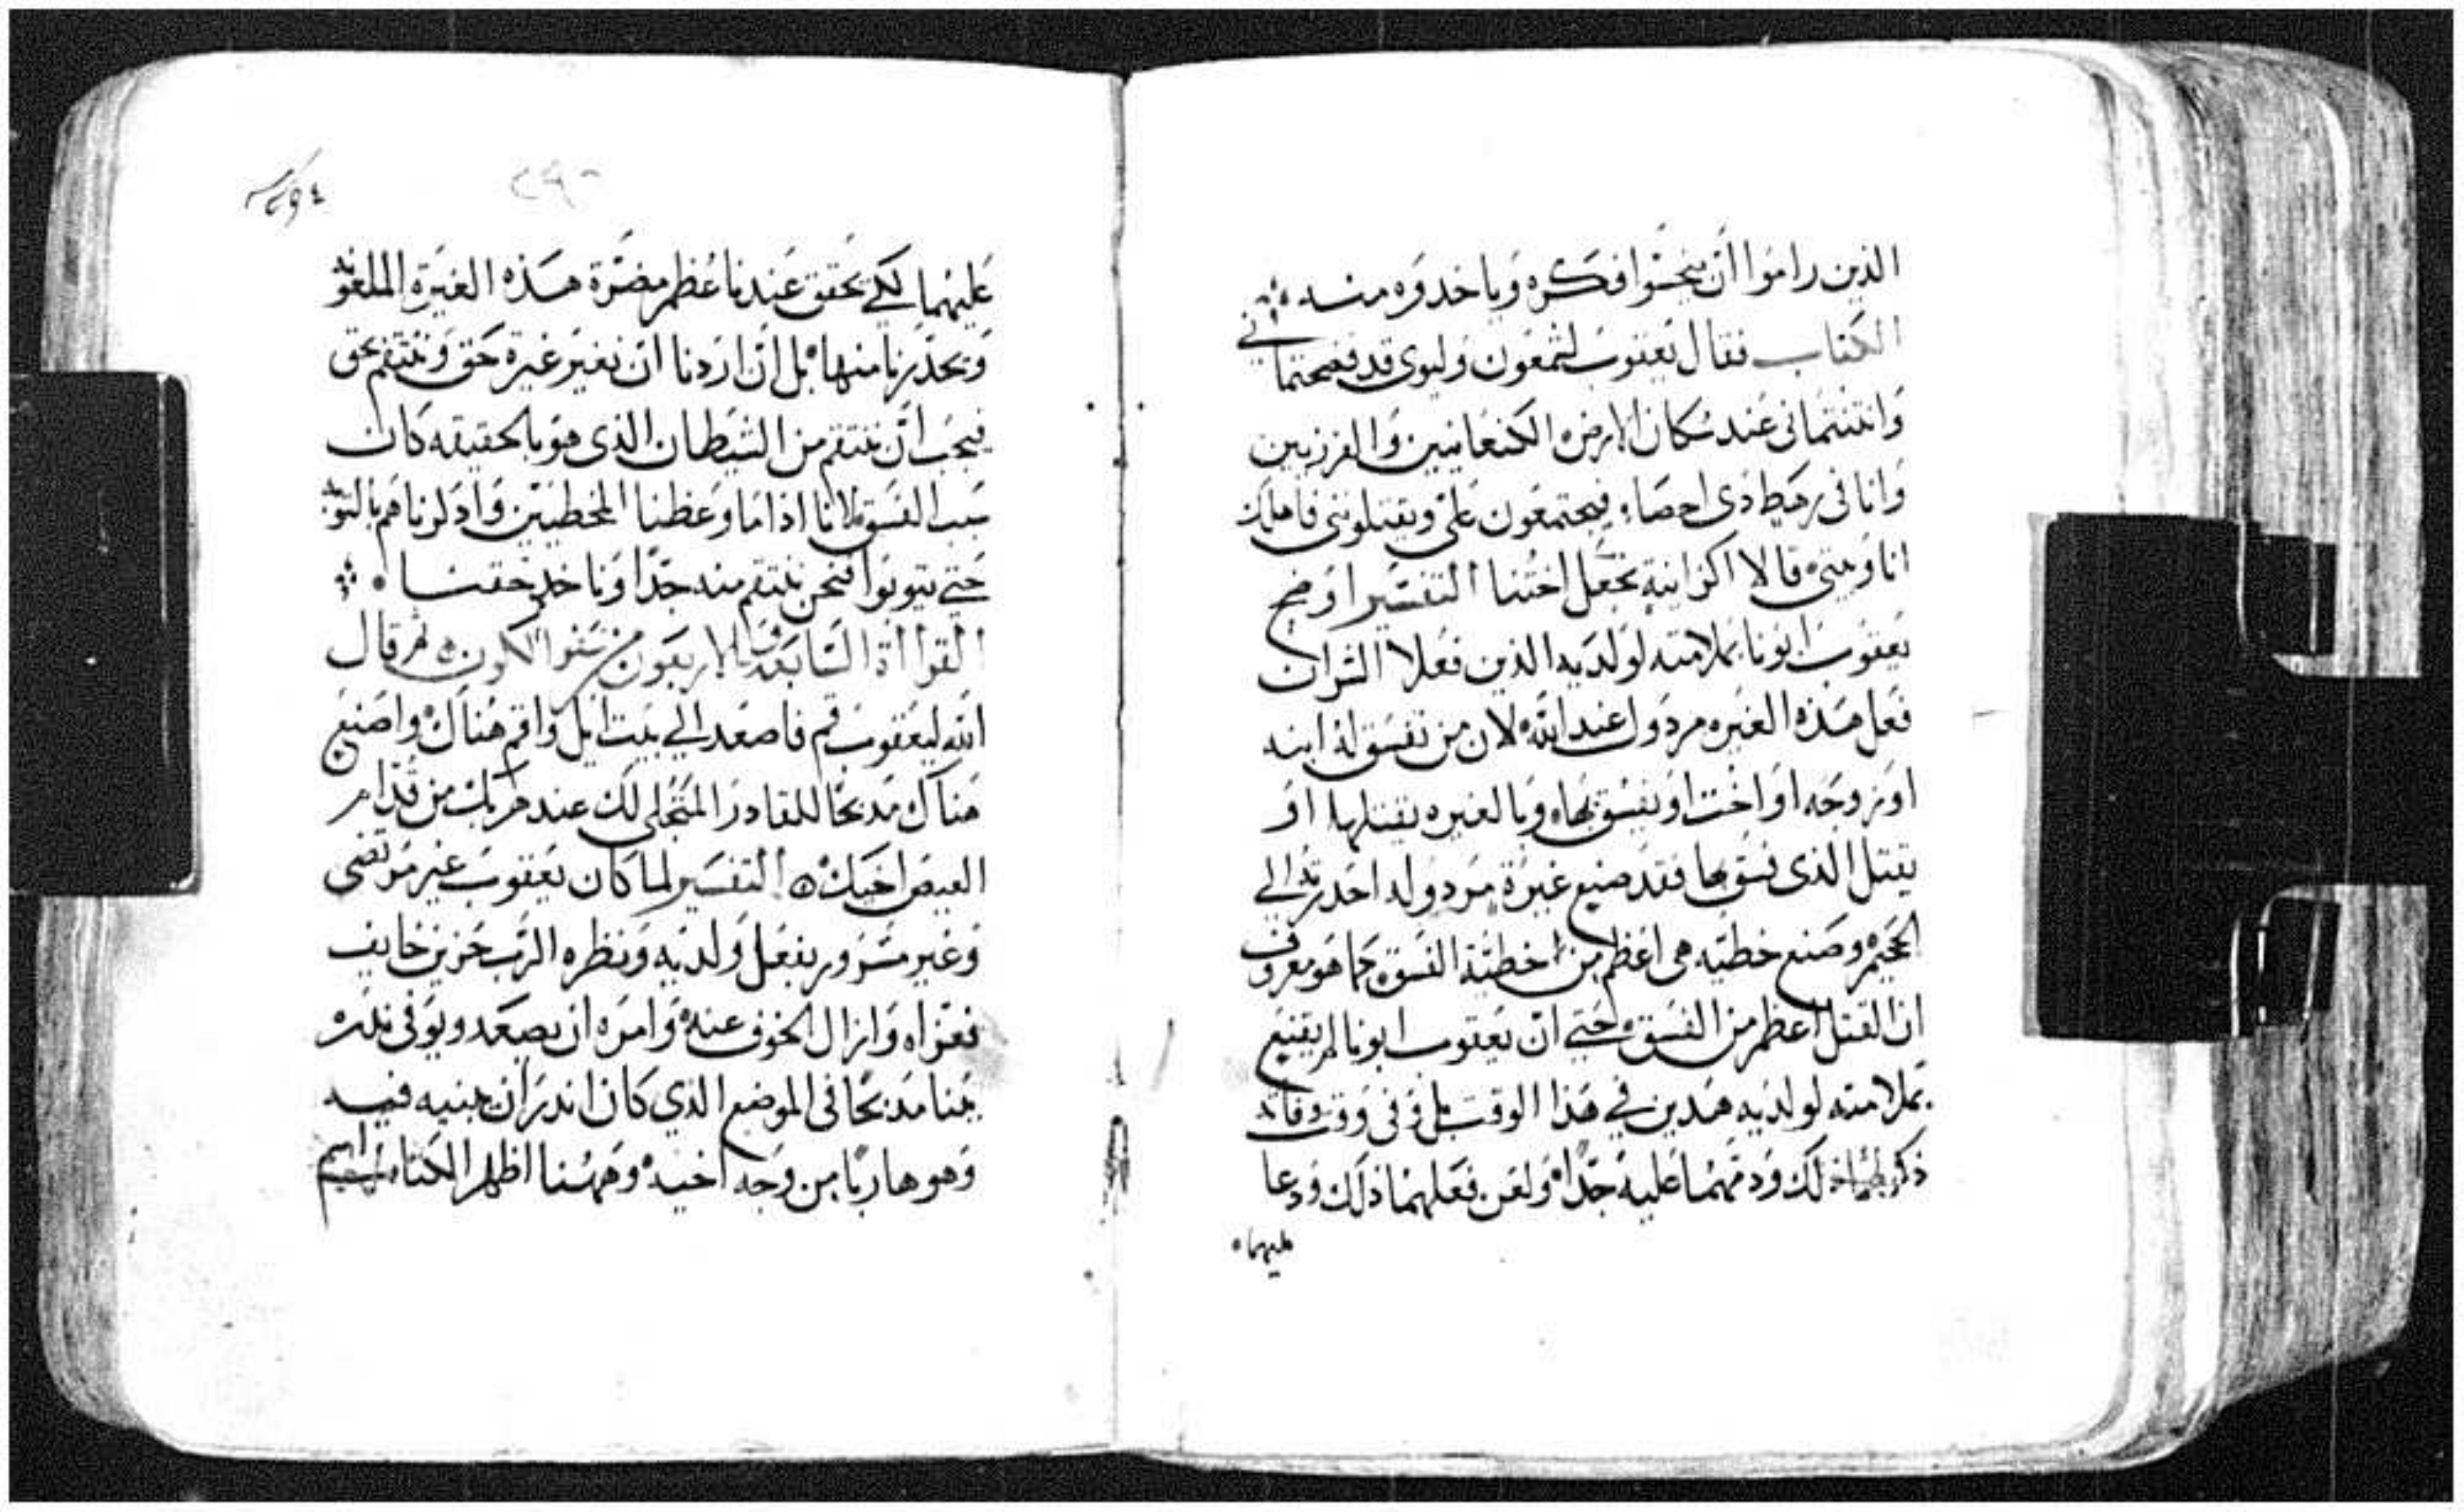 الذين راموا ان ينجسوا فكره وياخدوه منه
الكتاب فقال يعقوب لشمعون وليوى قد فضحتماني
وانتنتمانى عند سكان الارض الكنعانيين والفرزيين
وانا فى رهط ذى احصاء فيجتمعون على ويقتلوننى فاهلك
انا وبيتى قالا اكزانية تجعل اختنا التفسير اوضح
يعقوب ابونا بملامته لولديه الذين فعلا الشران
فعل هذه الغيره مردول عند الله لان من تفسق له ابنه
او زوجه او اخت او يفسق بها وبالغيره يقتلها او
يقتل الذى فسق بها فقد صنع غيرة مردوله احدرته الي
الجحيم وصنع خطيه هى اعظم من خطية الفسق كما هو معروف
ان القتل اعظم من الفسق حتي ان يعقوب ابونا لم يقنع
بملامته لولديه هدين في هذا الوقت بل وفى وقت وفاته
ذكر لهما ذلك ودمهما عليه جدا ولعن فعلهما ذلك ودعا
عليهما
عليهما لكي يحقق عندنا عظم مضرة هذه الغيرة الملعونه
ويحذرنا منها بل ان اردنا ان نغير غيرة حق وننتقم بحق
فيجب ان ننتقم من الشيطان الذى هو بالحقيقه كان
سبب الفسق لانا اذا ما وعظنا المخطيين وادلرناهم بالتوبه
حتي يتوبوا فنحن ننتقم منه جدا وناخد حقنا
القراأة السابعة والاربعون من سفر الكون ثم قال
الله ليعقوب قم فاصعد الي بيت ايل واقم هناك واصنع
هناك مدبحا للقادر المتجلى لك عند هربك من قدام
العيص اخيك التفسير لما كان يعقوب غير مرتضى
وغير مسرور بفعل ولديه ونظره الرب حزين خايف
فعزاه وازال الخوف عنه وامره ان يصعد ويوفى ندره
ببنا مدبحا فى الموضع الذي كان اندر ان يبنيه فيه
وهو هاربا من وجه اخيه وههنا اظهر الكتاب اسم